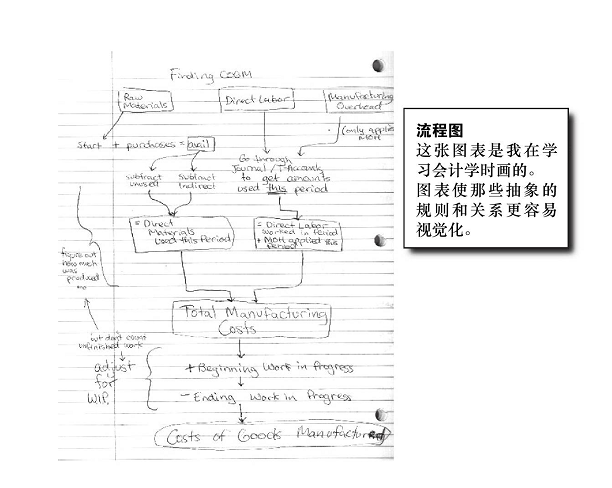 Finding COGM
Raw
Materials
Direct Labor
Manufacturing
Overhead
(only applied
MOH)
Start + purchases = avail
subtract
unused
Subtract
Indirect
Go through
Journal / T Accounts
to get amounts
used this period
= Direct
Materials
Used this Period
= Direct Labor
Worked in Period
+ MOH applied this
period
figure out
how much
was
produced
Total Manufacturing
Costs
but don't count
unfinished work
adjust
for
WIP.
+ Beginning Work in Progress
- Ending Work in Progress
Costs of Goods Manufactured
流程图
这张图表是我在学
习会计学时画的。
图表使那些抽象的
规则和关系更容易
视觉化。